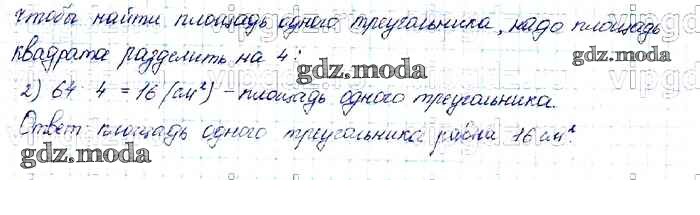 чтобы найти площадь одного треугольника, надо площадь
квадрата разделить на 4:
gdz.moda
2) 64 4 = 16 (см²) – площадь одного треугольника.
gdz.moda
Ответ площадь одного треугольника равна 16 см².
gdz.moda